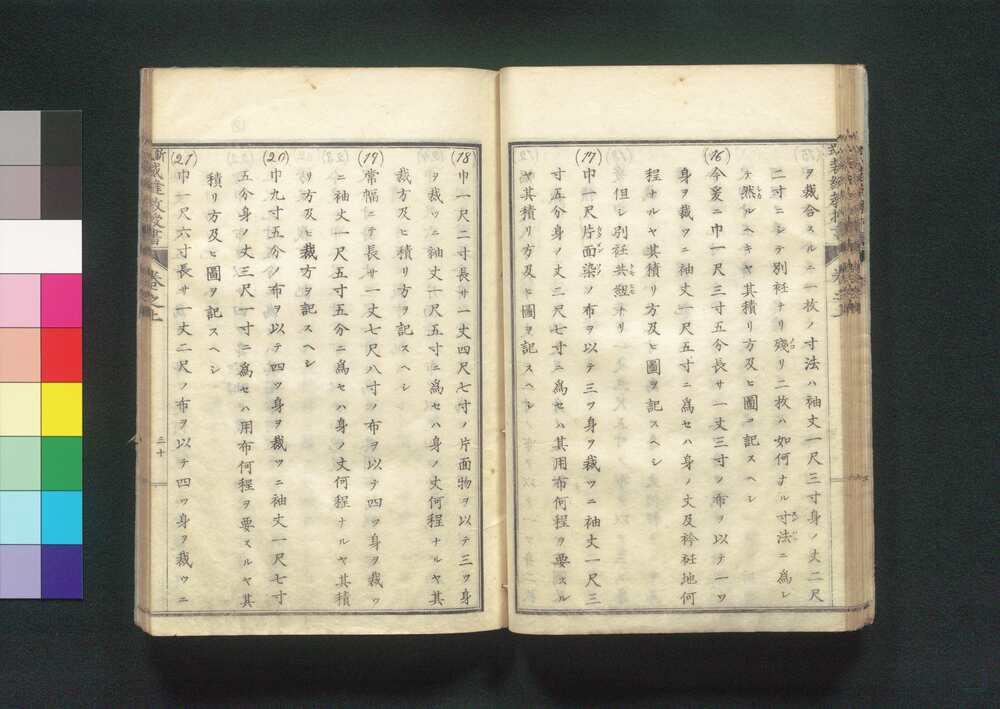 ヲ裁合スルニ一枚ノ寸法ハ袖丈一尺三寸身ノ丈二尺
二寸ニシテ別衽ナリ殘リ二枚ハ如何ナル寸法ニ爲シ
テ然ルヘキヤ其積リ方及ヒ圖ヲ記スヘシ
(16)今爰ニ巾一尺三寸五分長サ一丈三寸ノ布ヲ以テ一ツ
身ヲ裁ツニ袖丈一尺五寸ニ爲セハ身ノ丈及衿衽地何
程ナルヤ其積リ方及ヒ圖ヲ記スヘシ
但シ別衽共ナリ
(17)巾一尺片面染ノ布ヲ以テ三ツ身ヲ裁ツニ袖丈一尺三
寸五分身ノ丈二尺七寸ニ爲セハ其用布何程ヲ要スル
ヤ其積リ方及ヒ圖ヲ記スヘシ
(18)巾一尺二寸長サ一丈四尺七寸ノ片面物ヲ以テ三ツ身
ヲ裁ツニ袖丈一尺五寸ニ爲セハ身ノ丈何程ナルヤ其
裁方及ヒ積リ方ヲ記スヘシ
(19)常幅ニテ長サ一丈七尺八寸ノ布ヲ以テ四ツ身ヲ裁ツ
ニ袖丈一尺五寸五分ニ爲セハ身ノ丈何程ナルヤ其積
リ方及ヒ裁方ヲ記スヘシ
(20)巾九寸五分ノ布ヲ以テ四ツ身ヲ裁ツニ袖丈一尺七寸
五分身ノ丈三尺一寸ニ爲セハ用布何程ヲ要スルヤ其
積リ方及ヒ圖ヲ記スヘシ
(21)巾一尺六寸長サ一丈二尺ノ布ヲ以テ四ツ身ヲ裁ツニ
卷之上
三十